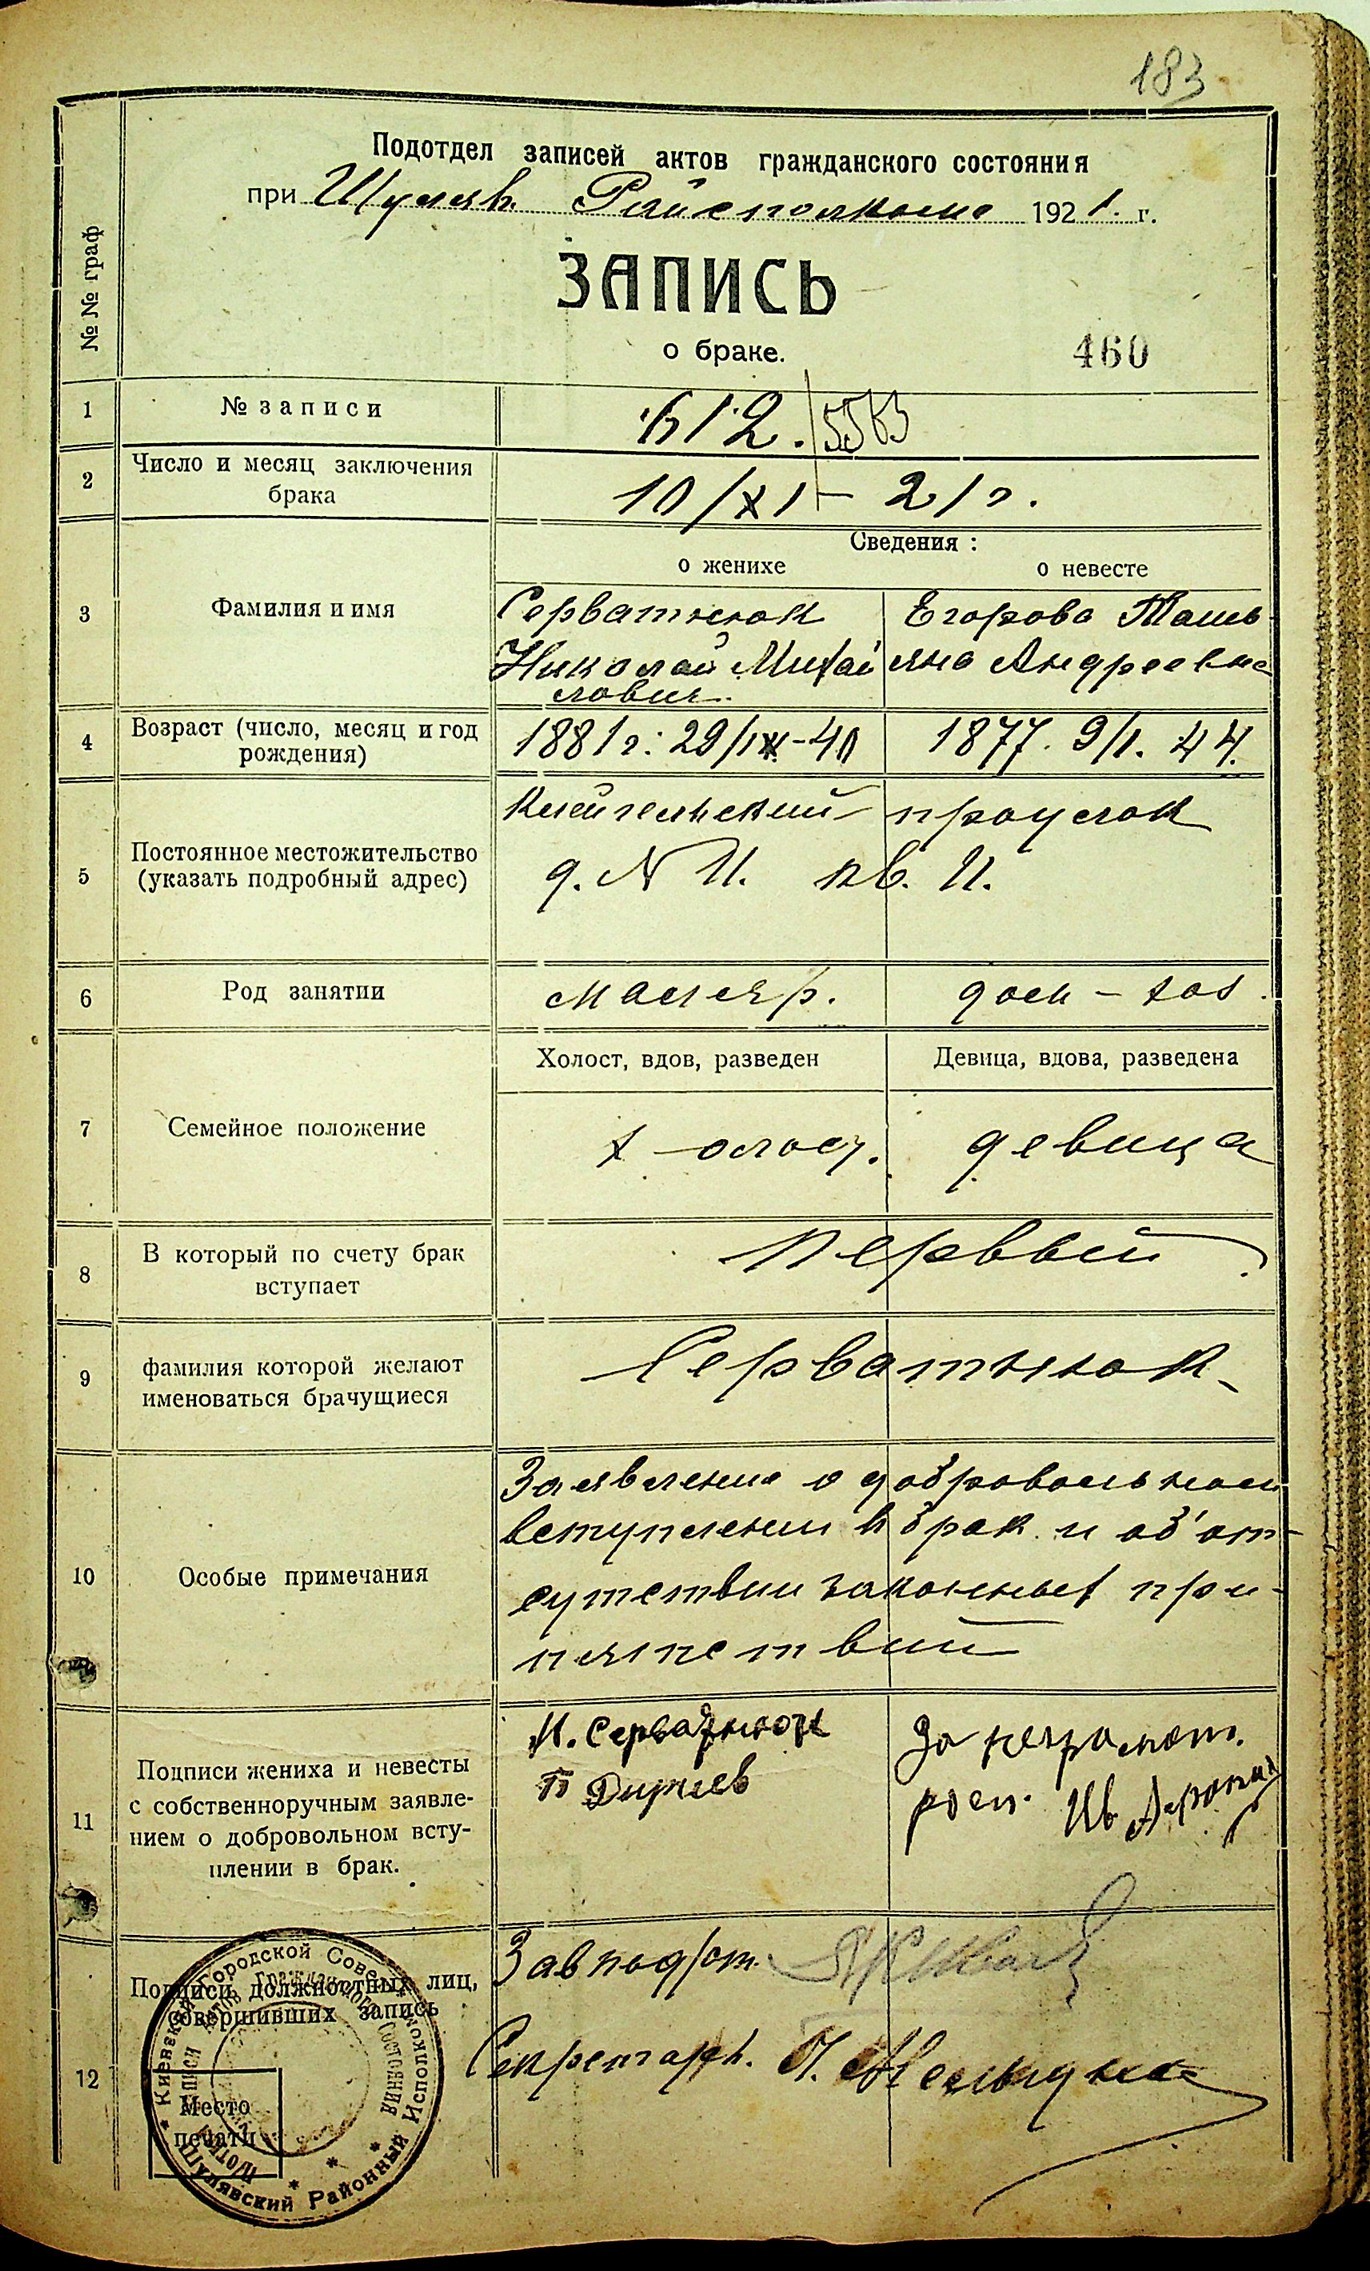 183
Подотдел записей актов гражданского состояния
при Шуляв. Райисполкоме 1921. г.
ЗАПИСЬ
о браке.
460
№№ граф
1 № записи 612. / 5563
2 Число и месяц заключения брака 10/XI – 21 г.
Сведения :
о женихе о невесте
3 Фамилия и имя
Серватнюк Егорова Тать-
Николай Михай яна Андреевна
лович
4 Возраст (число, месяц и год рождения) 1881 г. 29/IX - 40 1877. 9/I. 44.
5 Постоянное местожительство (указать подробный адрес)
проулок
д. N 11. кв. 11.
6 Род занятии маляр. дом - хоз.
Холост, вдов, разведен Девица, вдова, разведена
7 Семейное положение холост. девица
8 В который по счету брак вступает первый
9 фамилия которой желают именоваться брачущиеся Серватнюк
10 Особые примечания
Заявление о добровольном
вступлении в брак и об от-
сутствии законных пре-
пятствий
11 Подписи жениха и невесты
с собственноручным заявле-
нием о добровольном всту-
плении в брак.
Н. Серватнюк
За неграмот.
росп. Ив
12 Подписи должностных лиц,
совершивших запись
Зав подот.
Секретарь. П.
Место
печати
Киевский Городской Совет
Исполком
Шулявский Районный